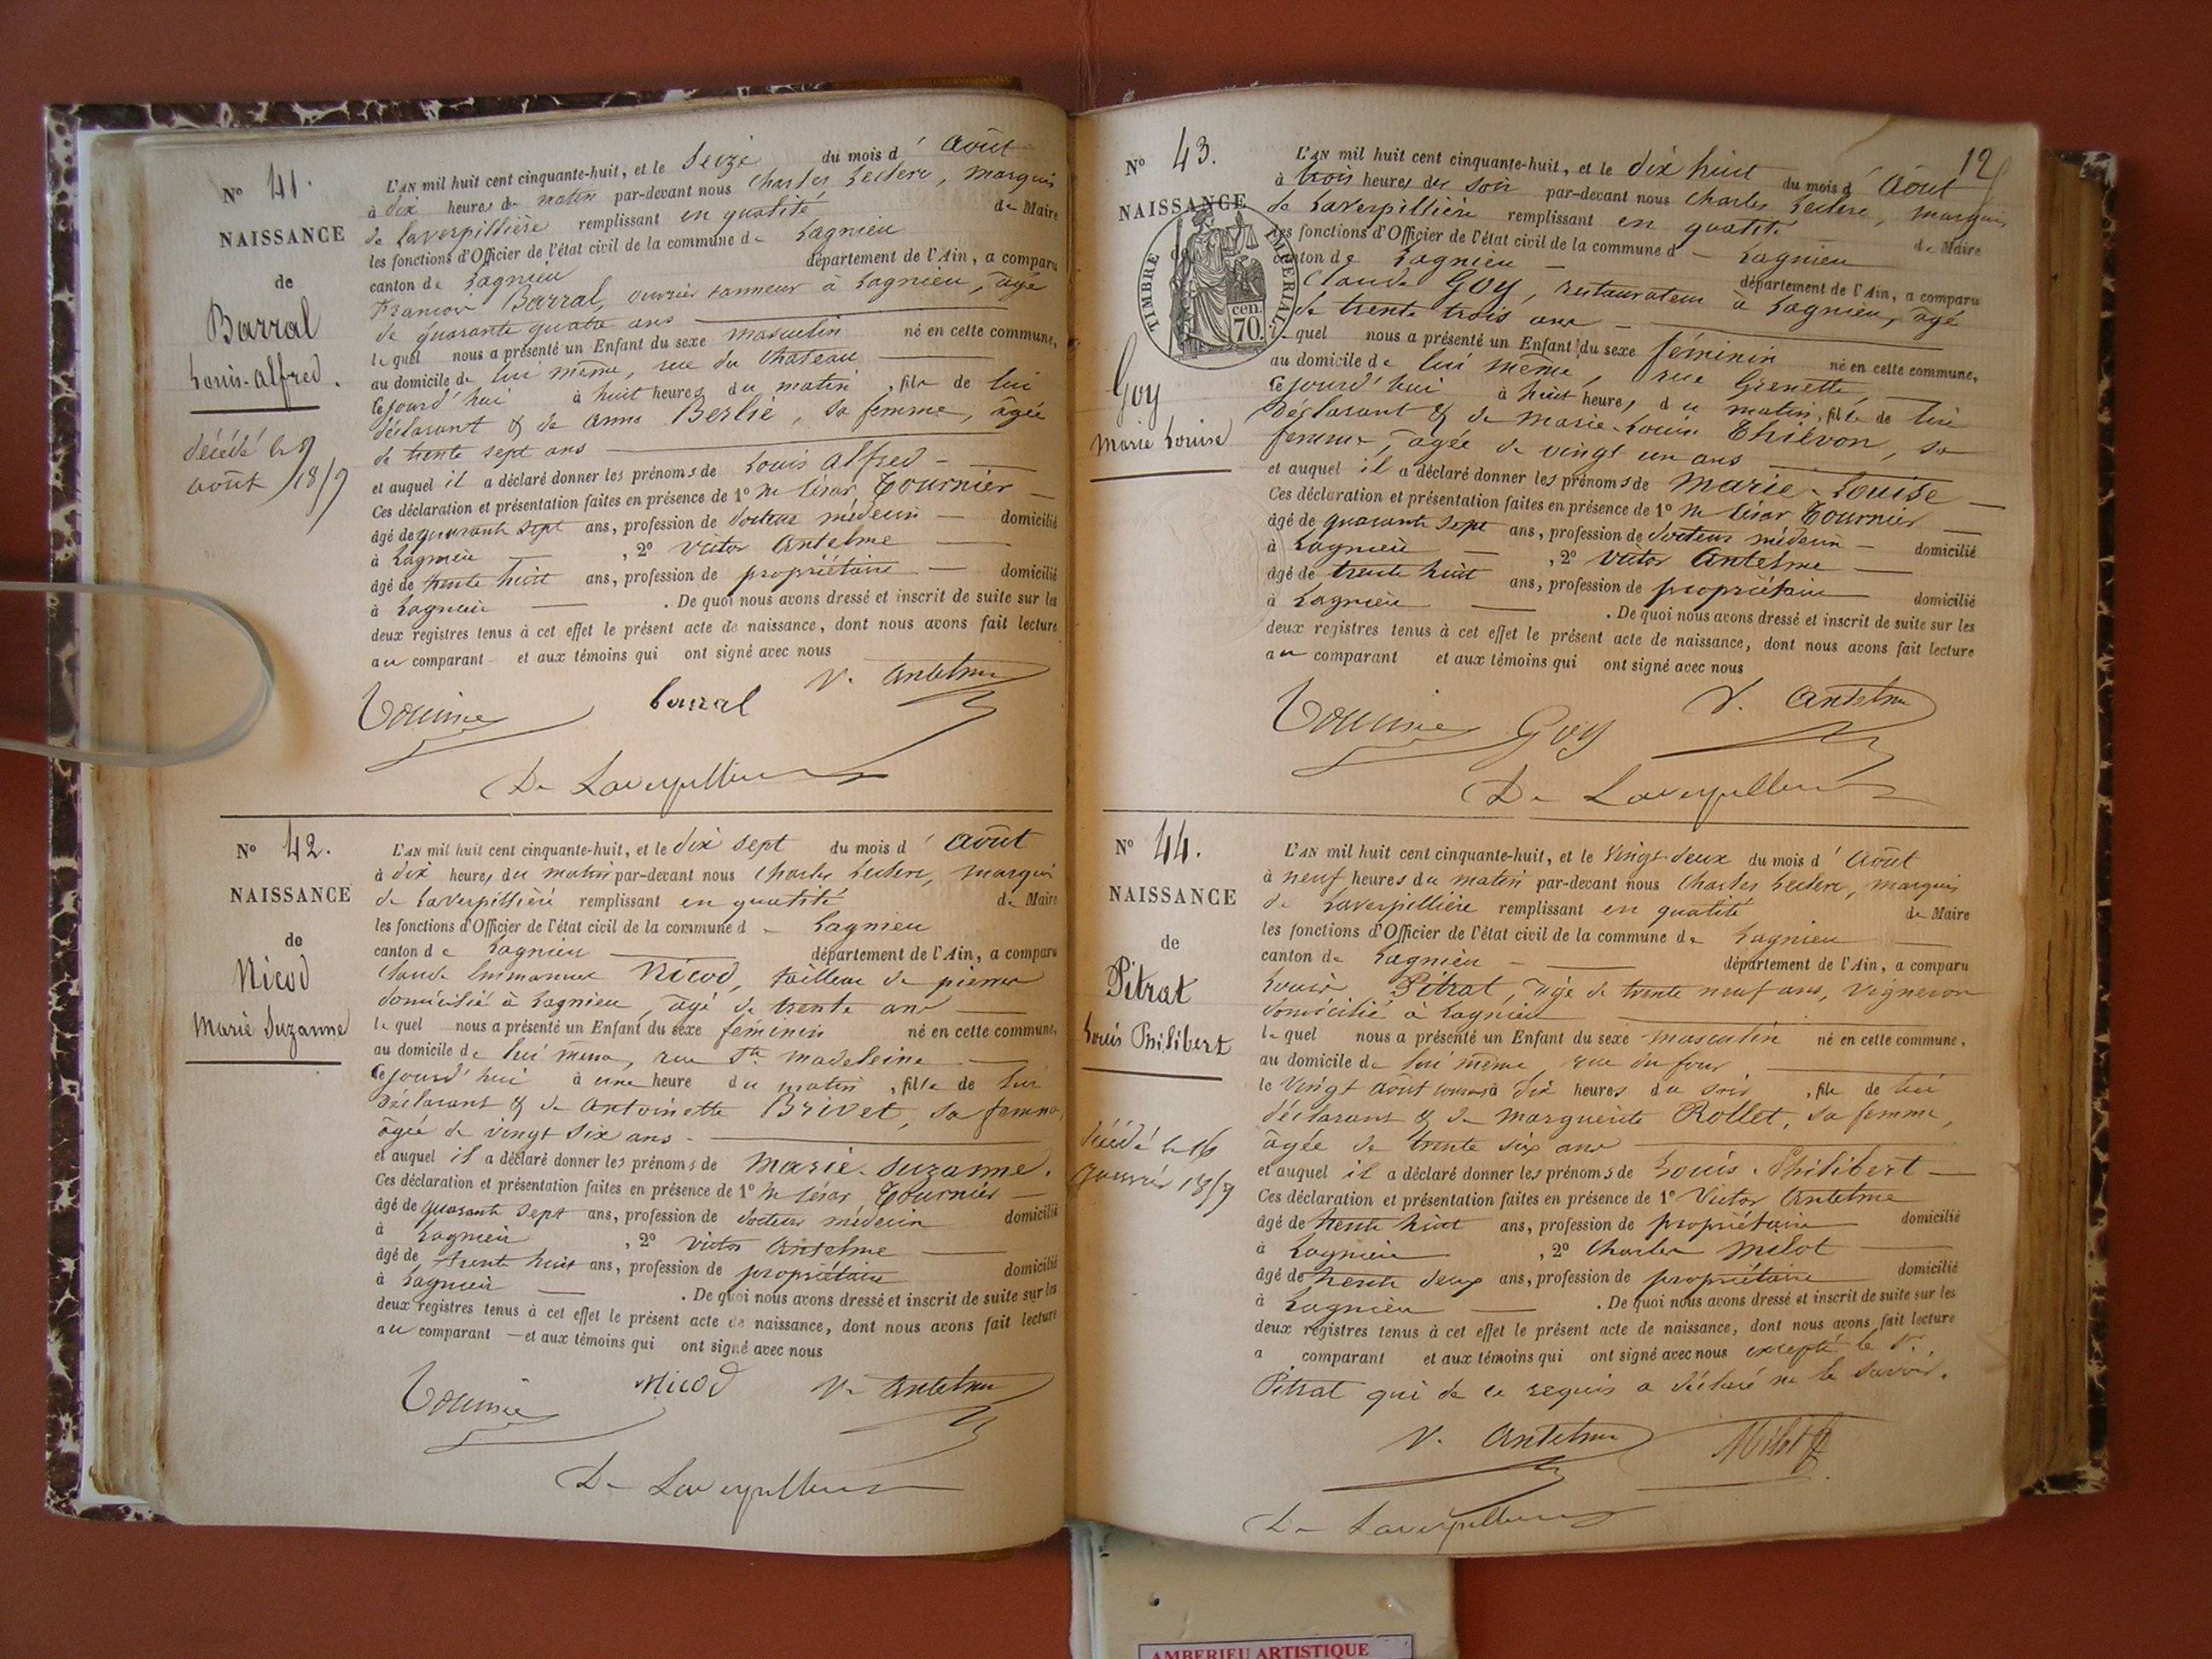 N° 41.
NAISSANCE
de
Barral
Louis-Alfred.
décédé le 9
août 1859
L'AN mil huit cent cinquante-huit, et le Seize du mois d' Août
à dix heures du matin par-devant nous Charles Leclerc, Marquis
de Laverpillière remplissant en qualité de Maire
les fonctions d'Officier de l'état civil de la commune de Lagnieu
canton de Lagnieu département de l'Ain, a comparu
François Barral, ouvrier tanneur à Lagnieu, âgé
de quarante quatre ans
lequel nous a présenté un Enfant du sexe masculin né en cette commune,
au domicile de lui même, rue du Chateau
Cejourd'hui à huit heures du matin, fils de lui
déclarant & de Anne Berlie, sa femme, âgée
de trente sept ans
et auquel il a déclaré donner les prénoms de Louis Alfred
Ces déclaration et présentation faites en présence de 1° M César Tournier
âgé de quarante sept ans, profession de docteur médecin domicilié
à Lagnieu, 2° Victor Antelme
âgé de trente huit ans, profession de propriétaire domicilié
à Lagnieu. De quoi nous avons dressé et inscrit de suite sur les
deux registres tenus à cet effet le présent acte de naissance, dont nous avons fait lecture
au comparant et aux témoins qui ont signé avec nous
V. Antelme
Tournier barral
De Laverpilliere
N° 42.
NAISSANCE
de
Nicod
Marie Suzanne
L'AN mil huit cent cinquante-huit, et le dix sept du mois d' Août
à dix heures du matin par-devant nous Charles Leclerc, marquis
de Laverpillière remplissant en qualité de Maire
les fonctions d'Officier de l'état civil de la commune de Lagnieu
canton de Lagnieu département de l'Ain, a comparu
Claude Emmanuel Nicod, tailleur de pierres
domicilié à Lagnieu, âgé de trente ans
lequel nous a présenté un Enfant du sexe féminin né en cette commune,
au domicile de lui même, rue Ste Madeleine
Cejourd'hui à une heure du matin, fille de lui
déclarant & de Antoinette Brivet, sa femme,
âgée de vingt six ans
et auquel il a déclaré donner les prénoms de Marie-Suzanne.
Ces déclaration et présentation faites en présence de 1° M César Tournier
âgé de quarante sept ans, profession de docteur médecin domicilié
à Lagnieu, 2° Victor Antelme
âgé de trente huit ans, profession de propriétaire domicilié
à Lagnieu. De quoi nous avons dressé et inscrit de suite sur les
deux registres tenus à cet effet le présent acte de naissance, dont nous avons fait lecture
au comparant et aux témoins qui ont signé avec nous
Tournier Nicod V. Antelme
De Laverpilliere
12
N° 43.
NAISSANCE
de
TIMBRE IMPERIAL
cen. 70.
Goy
Marie Louise
L'AN mil huit cent cinquante-huit, et le dix huit du mois d' Août
à trois heures du soir par-devant nous Charles Leclerc, marquis
de Laverpillière remplissant en qualité de Maire
les fonctions d'Officier de l'état civil de la commune d Lagnieu
canton de Lagnieu département de l'Ain, a comparu
Claude Goy, restaurateur à Lagnieu, âgé
de trente trois ans
lequel nous a présenté un Enfant du sexe féminin né en cette commune,
au domicile de lui même, rue Grenette,
Cejourd'hui à huit heures du matin, fille de lui
déclarant & de Marie-Louise Thiévon, sa
femme, âgée de vingt un ans
et auquel il a déclaré donner les prénoms de Marie-Louise
Ces déclaration et présentation faites en présence de 1° M César Tournier
âgé de quarante sept ans, profession de docteur médecin domicilié
à Lagnieu, 2° Victor Antelme
âgé de trente huit ans, profession de propriétaire domicilié
à Lagnieu. De quoi nous avons dressé et inscrit de suite sur les
deux registres tenus à cet effet le présent acte de naissance, dont nous avons fait lecture
au comparant et aux témoins qui ont signé avec nous
Tournier Goy V. Antelme
De Laverpilliere
N° 44.
NAISSANCE
de
Pitrat
Louis Philibert
décédé le 16
janvier 1859
L'AN mil huit cent cinquante-huit, et le vingt-deux du mois d' Août
à neuf heures du matin par-devant nous Charles Leclerc, marquis
de Laverpillière remplissant en qualité de Maire
les fonctions d'Officier de l'état civil de la commune de Lagnieu
canton de Lagnieu département de l'Ain, a comparu
Louis Pitrat, âgé de trente neuf ans, vigneron
domicilié à Lagnieu
lequel nous a présenté un Enfant du sexe masculin né en cette commune,
au domicile de lui même, rue du four
le vingt août courant à dix heures du soir, fils de lui
déclarant & de Marguerite Rollet, sa femme,
âgée de trente six ans
et auquel il a déclaré donner les prénoms de Louis-Philibert
Ces déclaration et présentation faites en présence de 1° Victor Antelme
âgé de trente huit ans, profession de propriétaire domicilié
à Lagnieu, 2° Charles Milot
âgé de trente deux ans, profession de propriétaire domicilié
à Lagnieu. De quoi nous avons dressé et inscrit de suite sur les
deux registres tenus à cet effet le présent acte de naissance, dont nous avons fait lecture
a comparant et aux témoins qui ont signé avec nous excepté le Sr.
Pitrat qui de ce requis a déclaré ne le savoir.
V. Antelme Milot
De Laverpilliere
AMBERIEU ARTISTIQUE